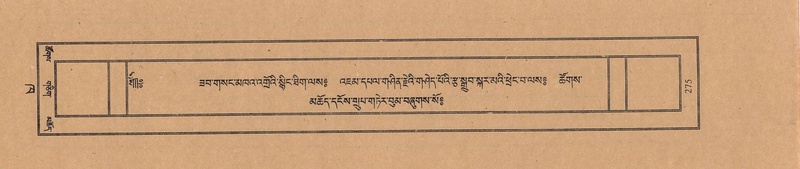 ༄༅།།༔ ཟབ་གསང་མཁའ་འགྲོའི་སྙིང་ཐིག་ལས༔ འཇམ་དཔལ་གཤིན་རྗེའི་གཤེད་པོའི་རྩ་སྒྲུབ་སྐར་མའི་ཕྲེང་བ་ལས༔ ཚོགས་
མཆོད་དངོས་གྲུབ་གཏེར་བུམ་བཞུགས་སོ༔
275